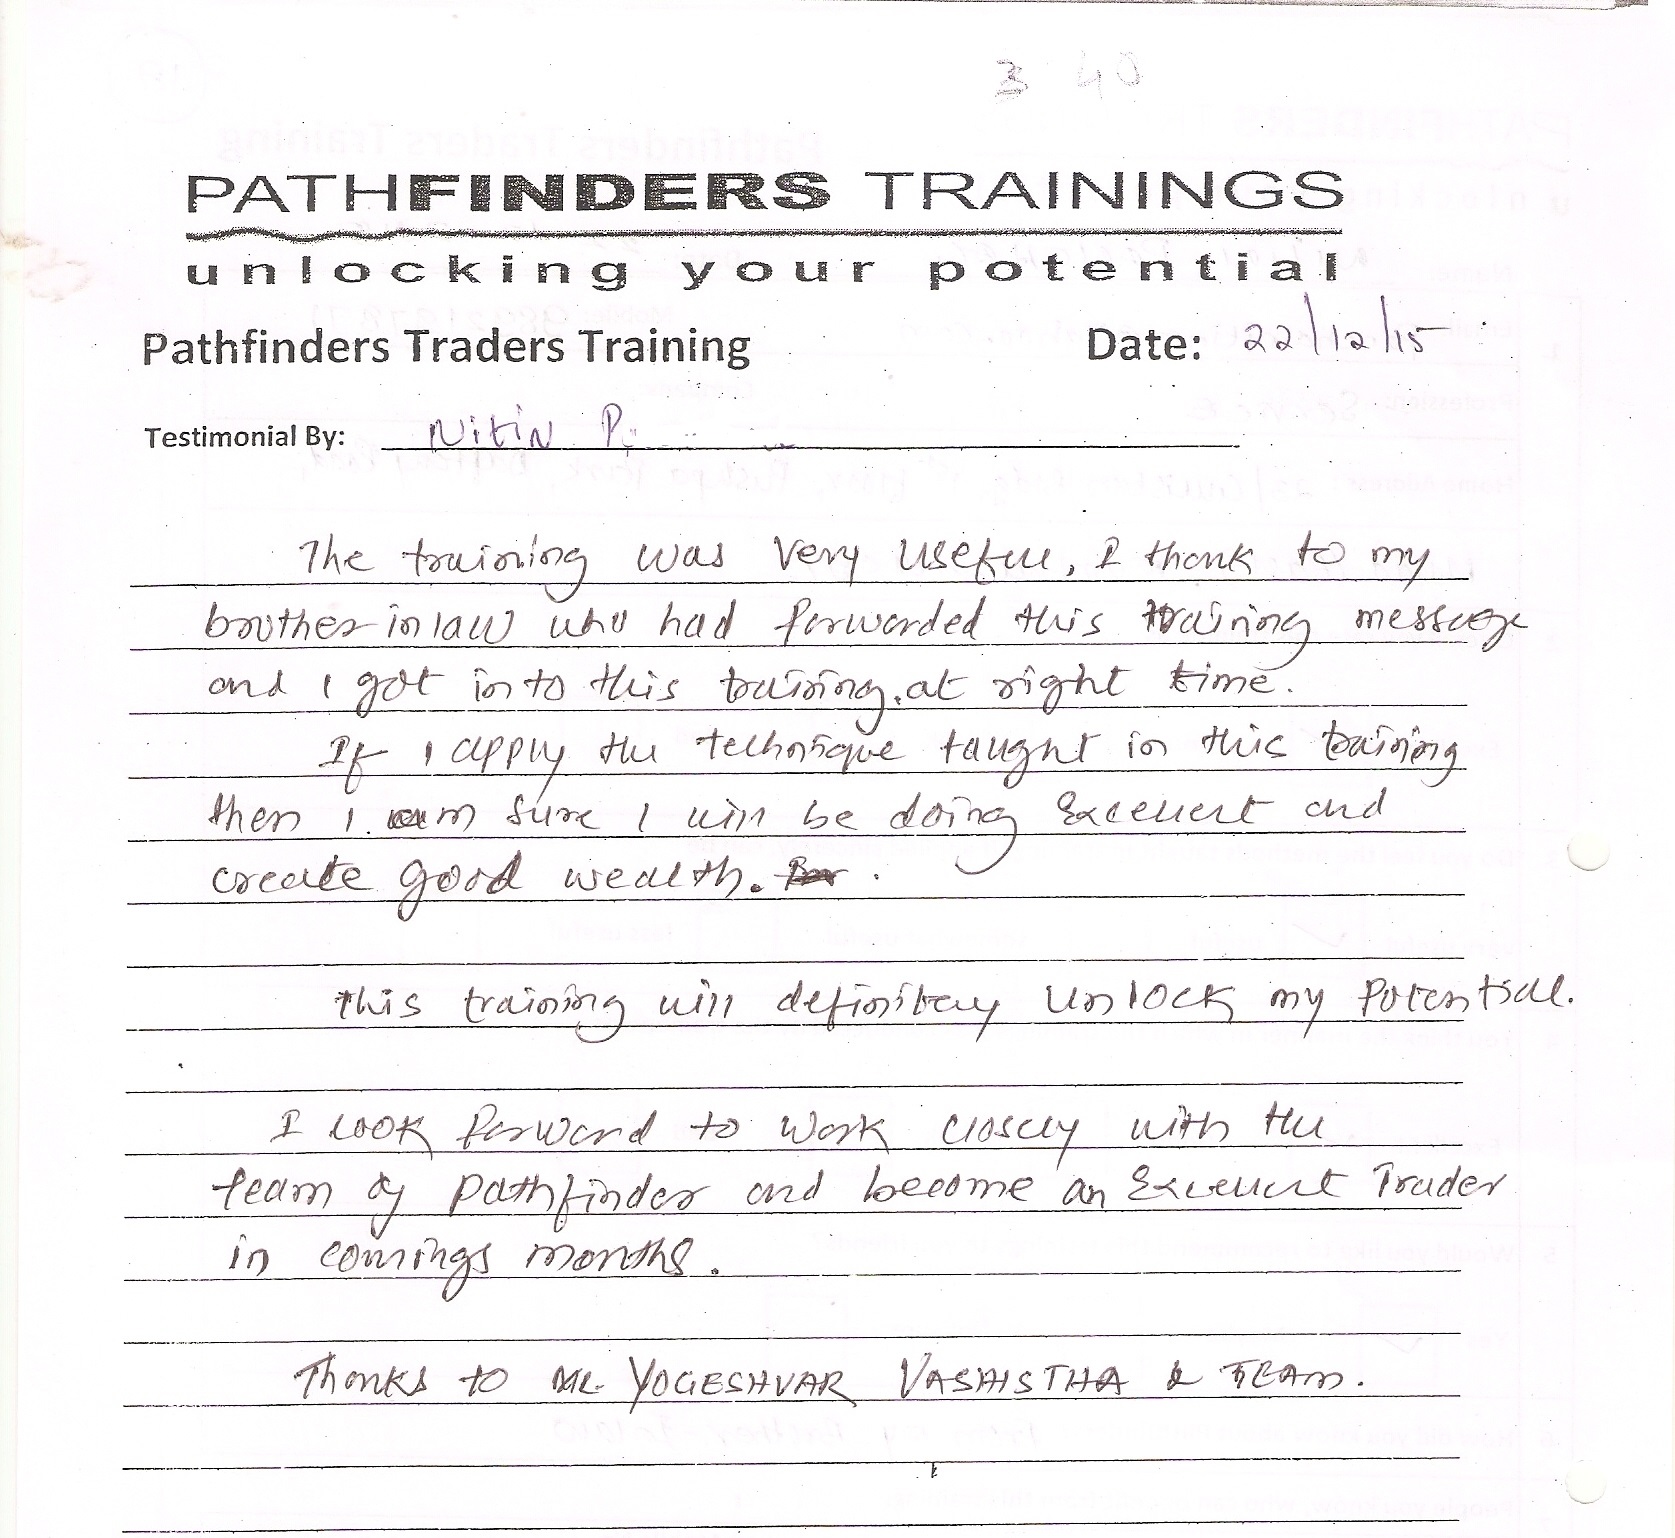 3 40
PATHFINDERS TRAININGS
unlocking your potential
Pathfinders Traders Training Date: 22/12/15
Testimonial By: Nitin P.
The training was very useful, I thank to my
brother in law who had forwarded this training message
and I got into this training. at right time.
If I apply the technique taught in this training
then I am sure I will be doing Excellent and
create good wealth. .
This training will definitely Unlock my Potential.
I look forward to work closely with the
team of pathfinder and become an Excellent Trader
in comings months.
Thanks to Mr. YOGESHVAR VASHISTHA & TEAM.